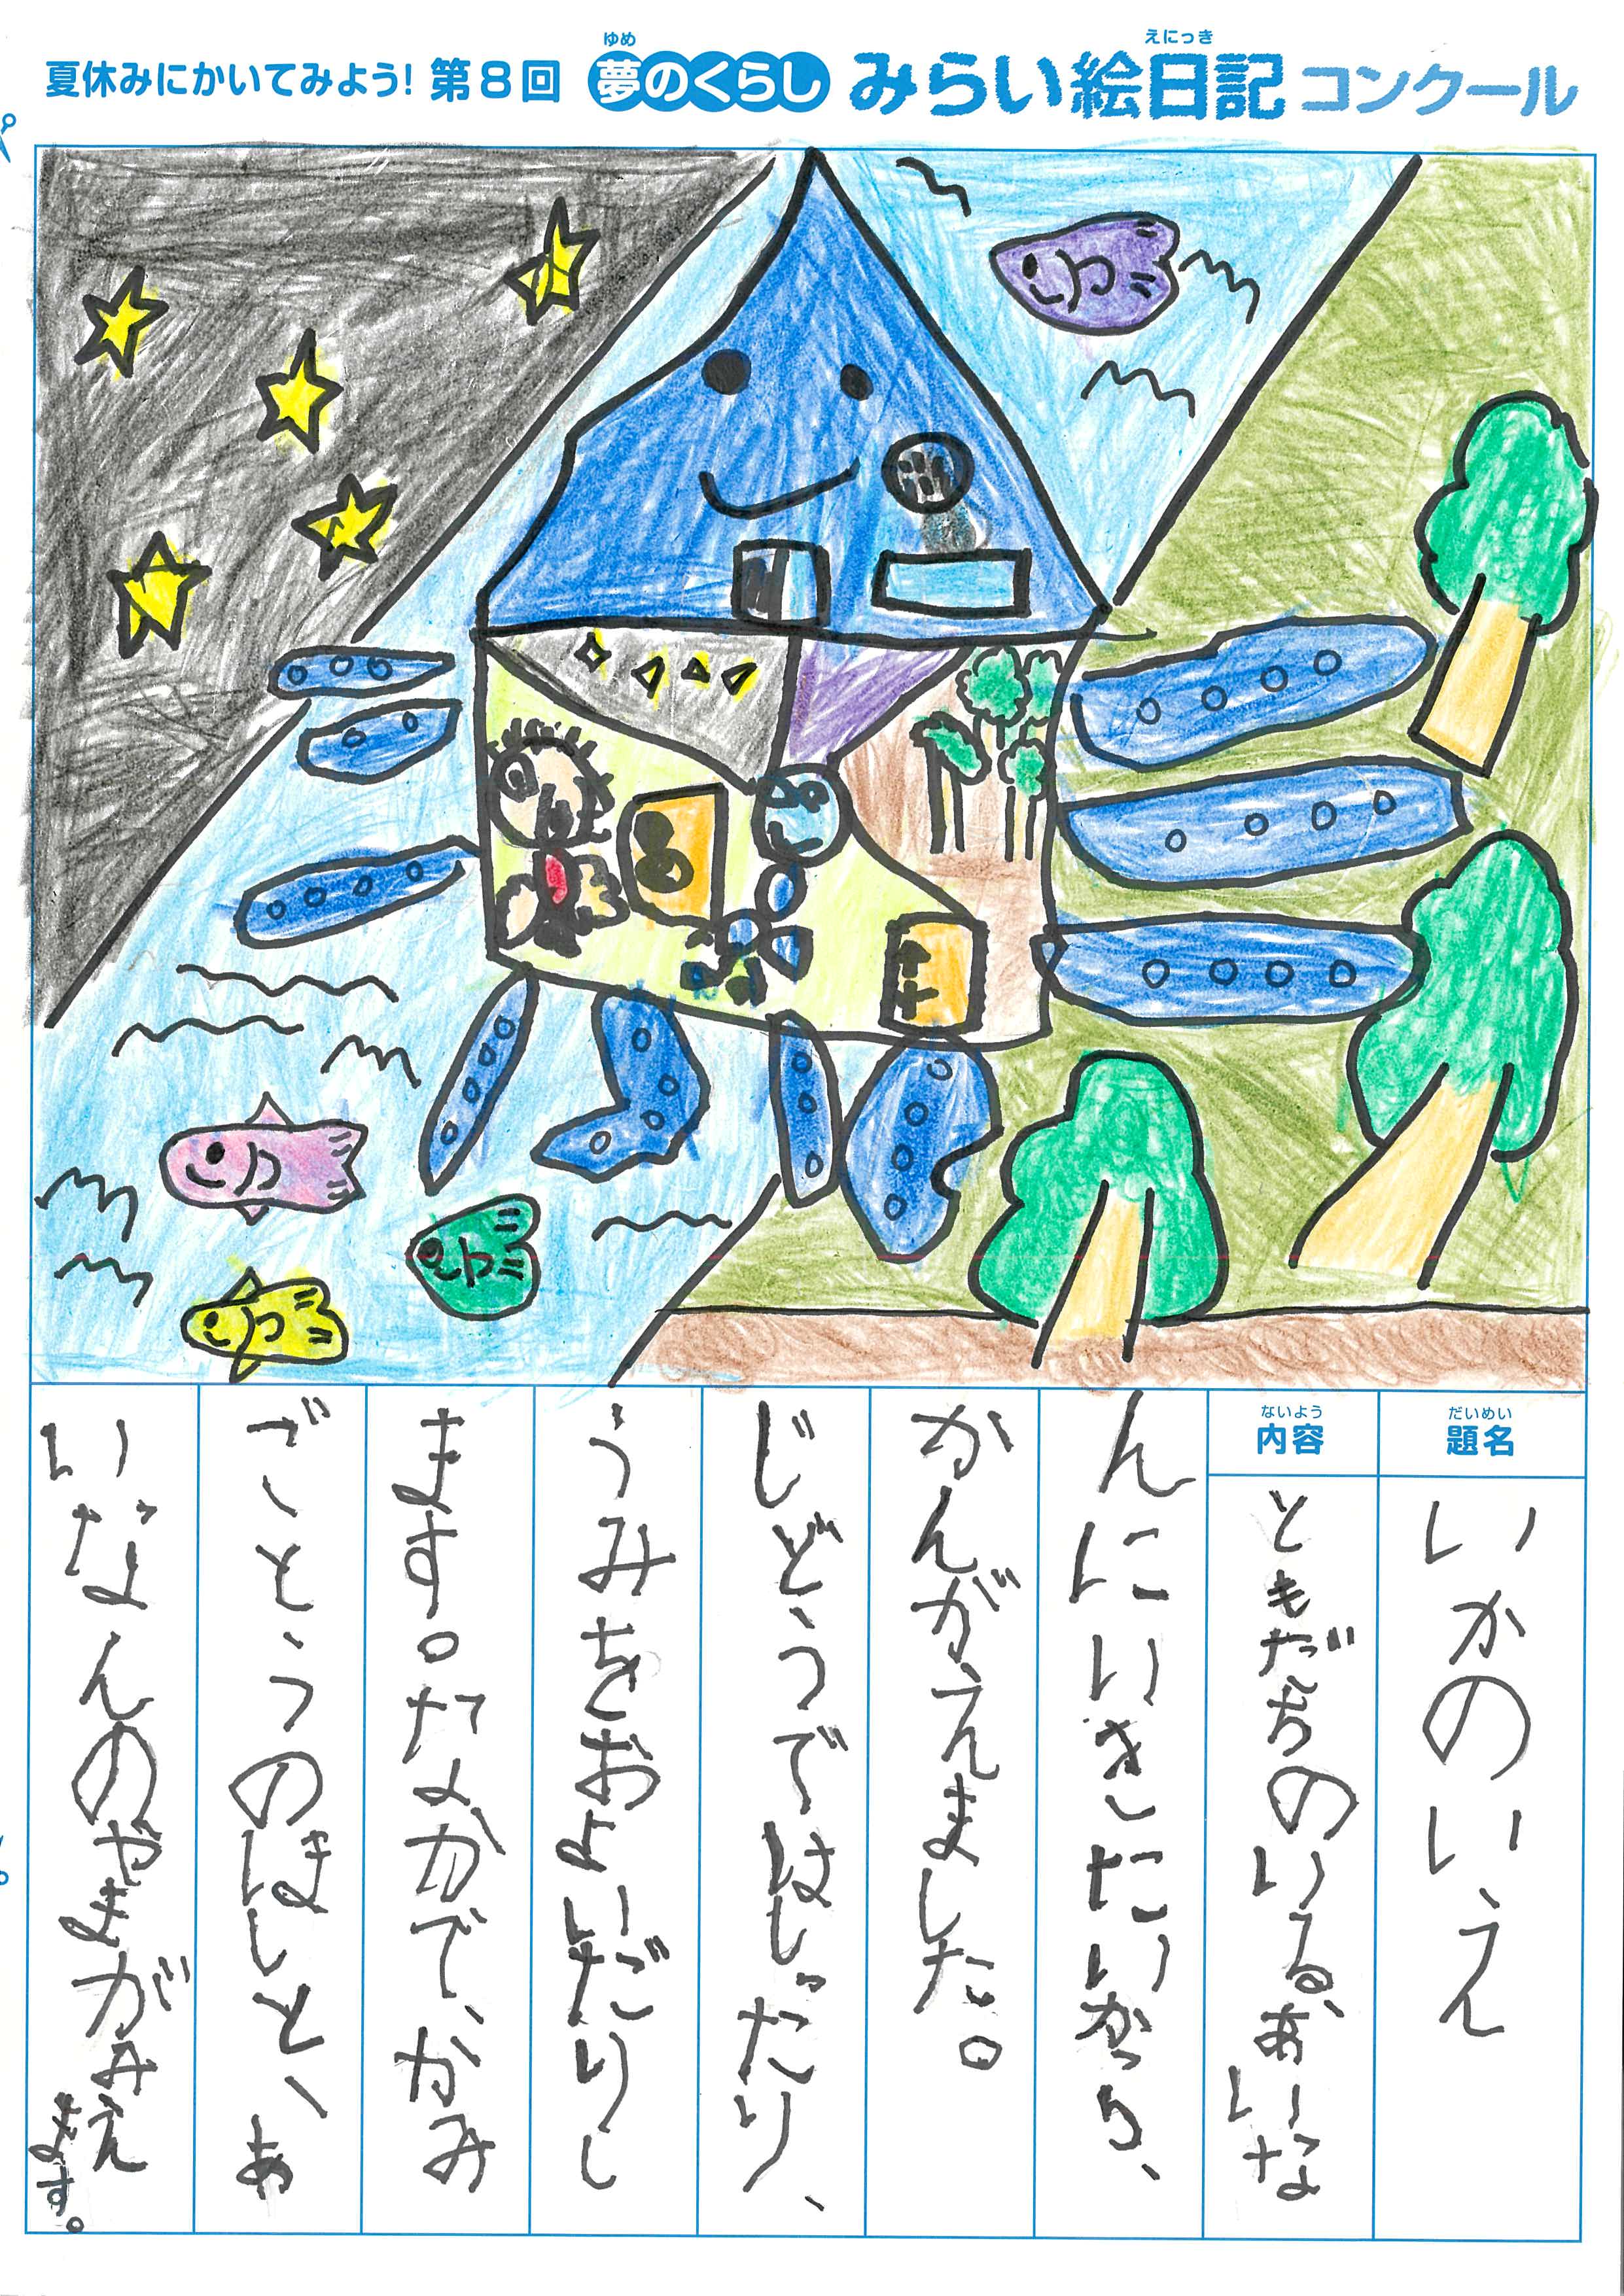 夏休みにかいてみよう! 第8回 夢のくらし みらい絵日記 コンクール
ゆめ
えにっき
だいめい
題名
いかのいえ
ないよう
内容
ともだちのいる、あいな
んにいきたいから、
かんがえました。
じどうではしったり、
うみをおよいだりし
ます。なかで、かみ
ごとうのほしと、あ
いなんのやまがみえ
ます。